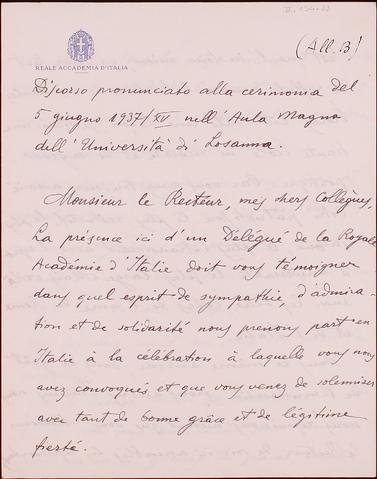 (All. B)
REALE ACCADEMIA D'ITALIA
Discorso pronunciato alla cerimonia del
5 giugno 1937/XV nell'Aula Magna
dell'Università di Losanna.
Monsieur le Recteur, mes chers Collègues,
La présence ici d'un Délégué de la Royale
Académie d'Italie doit vous témoigner
dans quel esprit de sympathie, d'admira-
tion et de solidarité nous prenons part en
Italie à la célébration à laquelle vous nous
avez convoqués et que vous venez de solemniser
avec tant de bonne grâce et de légitime
fierté.